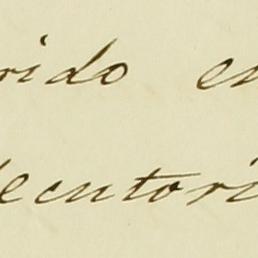 rido en
ecutori